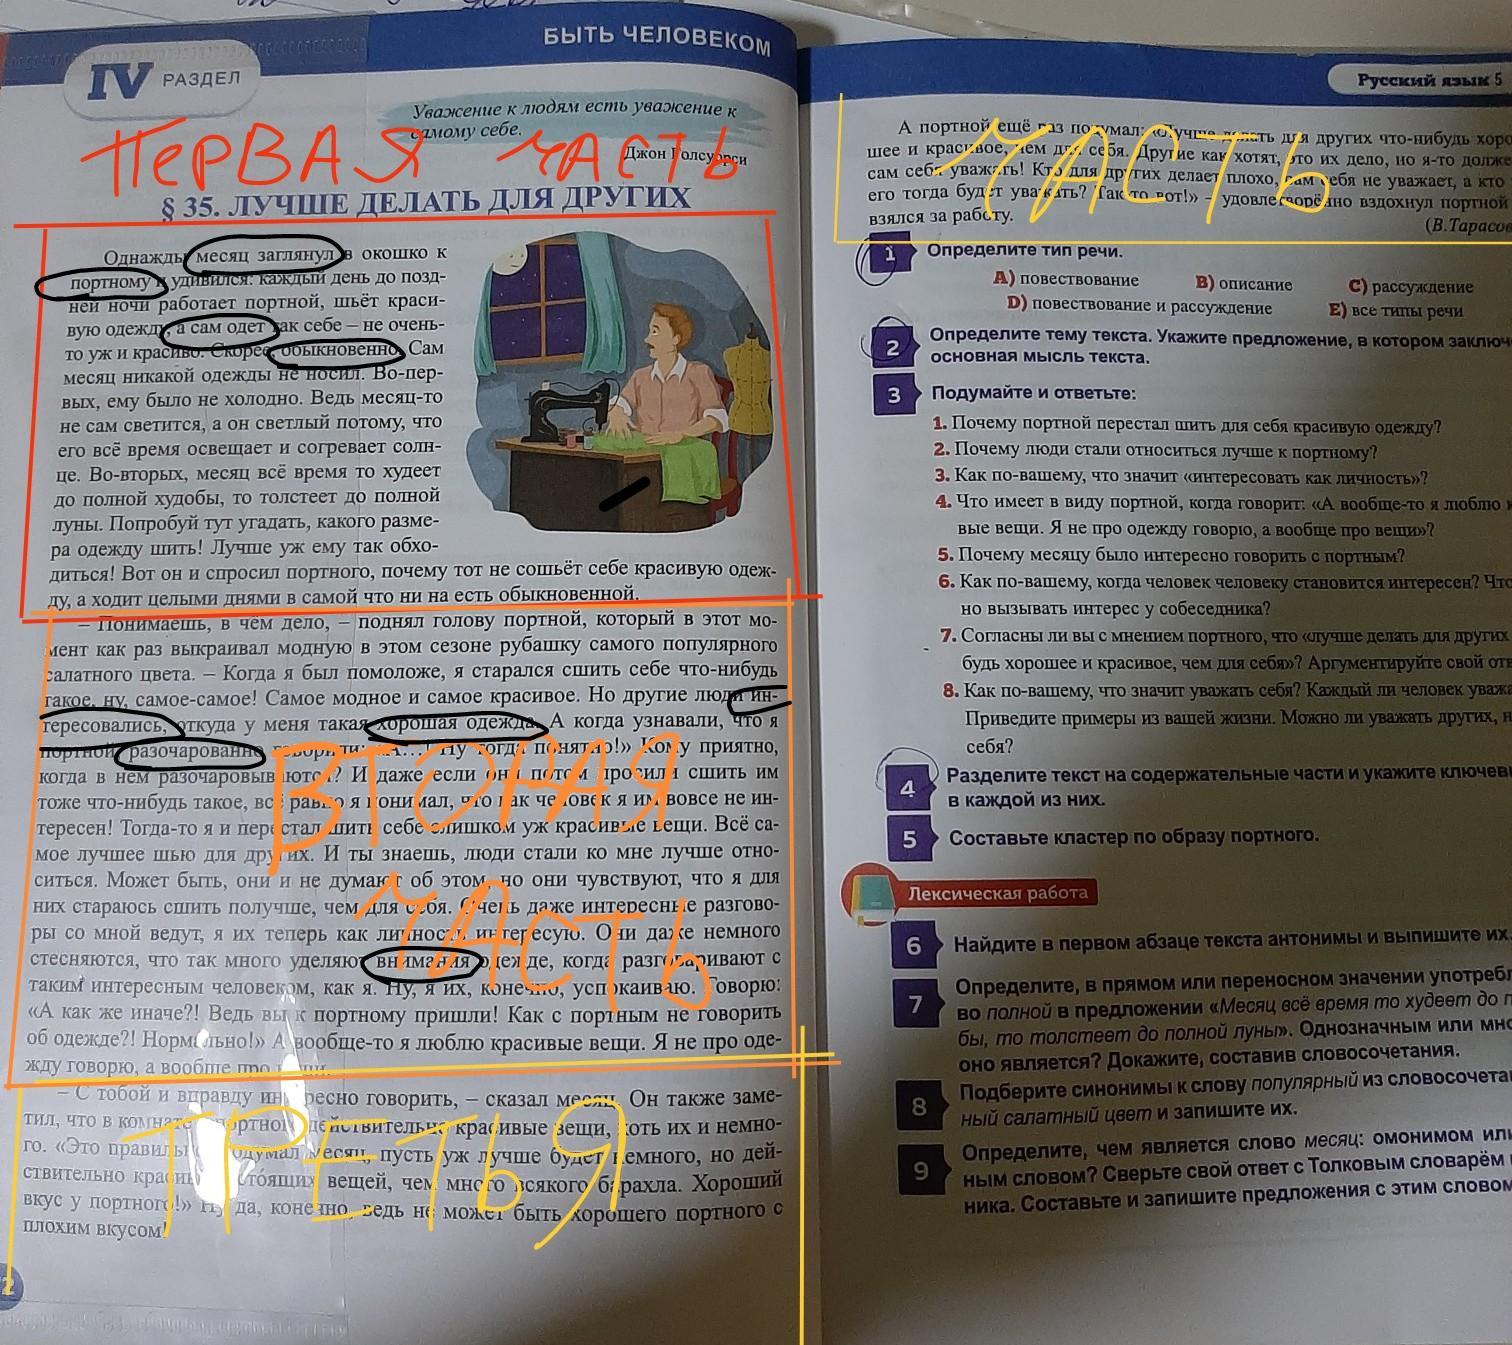 БЫТЬ ЧЕЛОВЕКОМ
IV РАЗДЕЛ
Уважение к людям есть уважение к
самому себе.
Джон Голсуорси
ПЕРВАЯ ЧАСТЬ
§ 35. ЛУЧШЕ ДЕЛАТЬ ДЛЯ ДРУГИХ
Однажды месяц заглянул в окошко к
портному и удивился: каждый день до позд-
ней ночи работает портной, шьёт краси-
вую одежду, а сам одет так себе – не очень-
то уж и красиво. Скорее, обыкновенно. Сам
месяц никакой одежды не носил. Во-пер-
вых, ему было не холодно. Ведь месяц-то
не сам светится, а он светлый потому, что
его всё время освещает и согревает солн-
це. Во-вторых, месяц всё время то худеет
до полной худобы, то толстеет до полной
луны. Попробуй тут угадать, какого разме-
ра одежду шить! Лучше уж ему так обхо-
диться! Вот он и спросил портного, почему тот не сошьёт себе красивую одеж-
ду, а ходит целыми днями в самой что ни на есть обыкновенной.
– Понимаешь, в чём дело, – поднял голову портной, который в этот мо-
мент как раз выкраивал модную в этом сезоне рубашку самого популярного
салатного цвета. – Когда я был помоложе, я старался сшить себе что-нибудь
такое, ну, самое-самое! Самое модное и самое красивое. Но другие люди ин-
тересовались, откуда у меня такая хорошая одежда. А когда узнавали, что я
портной, разочарованно говорили: «А…! Ну тогда понятно!» Кому приятно,
когда в нём разочаровываются? И даже если они потом просили сшить им
тоже что-нибудь такое, всё равно я понимал, что как человек я им вовсе не ин-
тересен! Тогда-то я и перестал шить себе слишком уж красивые вещи. Всё са-
мое лучшее шью для других. И ты знаешь, люди стали ко мне лучше отно-
ситься. Может быть, они и не думают об этом, но они чувствуют, что я для
них стараюсь сшить получше, чем для себя. Очень даже интересные разгово-
ры со мной ведут, я их теперь как личность интересую. Они даже немного
стесняются, что так много уделяют внимания одежде, когда разговаривают с
таким интересным человеком, как я. Ну, я их, конечно, успокаиваю. Говорю:
«А как же иначе?! Ведь вы к портному пришли! Как с портным не говорить
об одежде?! Нормально!» А вообще-то я люблю красивые вещи. Я не про оде-
жду говорю, а вообще про вещи.
ВТОРАЯ
ЧАСТЬ
– С тобой и вправду интересно говорить, – сказал месяц. Он также заме-
тил, что в комнате портного действительно красивые вещи, хоть их и немно-
го. «Это правильно, подумал месяц, пусть уж лучше будет немного, но дей-
ствительно красивых настоящих вещей, чем много всякого барахла. Хороший
вкус у портного!» Ну да, конечно, ведь не может быть хорошего портного с
плохим вкусом!
ТРЕТЬЯ
Русский язык 5
А портной ещё раз подумал: «Лучше делать для других что-нибудь хоро
шее и красивое, чем для себя. Другие как хотят, это их дело, но я-то долже
сам себя уважать! Кто для других делает плохо, сам себя не уважает, а кто
его тогда будет уважать? Так-то вот!» – удовлетворённо вздохнул портной
взялся за работу.
(В.Тарасов
ЧАСТЬ
1 Определите тип речи.
A) повествование B) описание C) рассуждение
D) повествование и рассуждение E) все типы речи
2 Определите тему текста. Укажите предложение, в котором заключе
основная мысль текста.
3 Подумайте и ответьте:
1. Почему портной перестал шить для себя красивую одежду?
2. Почему люди стали относиться лучше к портному?
3. Как по-вашему, что значит «интересовать как личность»?
4. Что имеет в виду портной, когда говорит: «А вообще-то я люблю к
вые вещи. Я не про одежду говорю, а вообще про вещи»?
5. Почему месяцу было интересно говорить с портным?
6. Как по-вашему, когда человек человеку становится интересен? Что
но вызывать интерес у собеседника?
7. Согласны ли вы с мнением портного, что «лучше делать для других
будь хорошее и красивое, чем для себя»? Аргументируйте свой отв
8. Как по-вашему, что значит уважать себя? Каждый ли человек уваж
Приведите примеры из вашей жизни. Можно ли уважать других, н
себя?
4 Разделите текст на содержательные части и укажите ключев
в каждой из них.
5 Составьте кластер по образу портного.
Лексическая работа
6 Найдите в первом абзаце текста антонимы и выпишите их.
7 Определите, в прямом или переносном значении употребл
во полной в предложении «Месяц всё время то худеет до п
бы, то толстеет до полной луны». Однозначным или мно
оно является? Докажите, составив словосочетания.
8 Подберите синонимы к слову популярный из словосочета
ный салатный цвет и запишите их.
9 Определите, чем является слово месяц: омонимом или
ным словом? Сверьте свой ответ с Толковым словарём
ника. Составьте и запишите предложения с этим словом